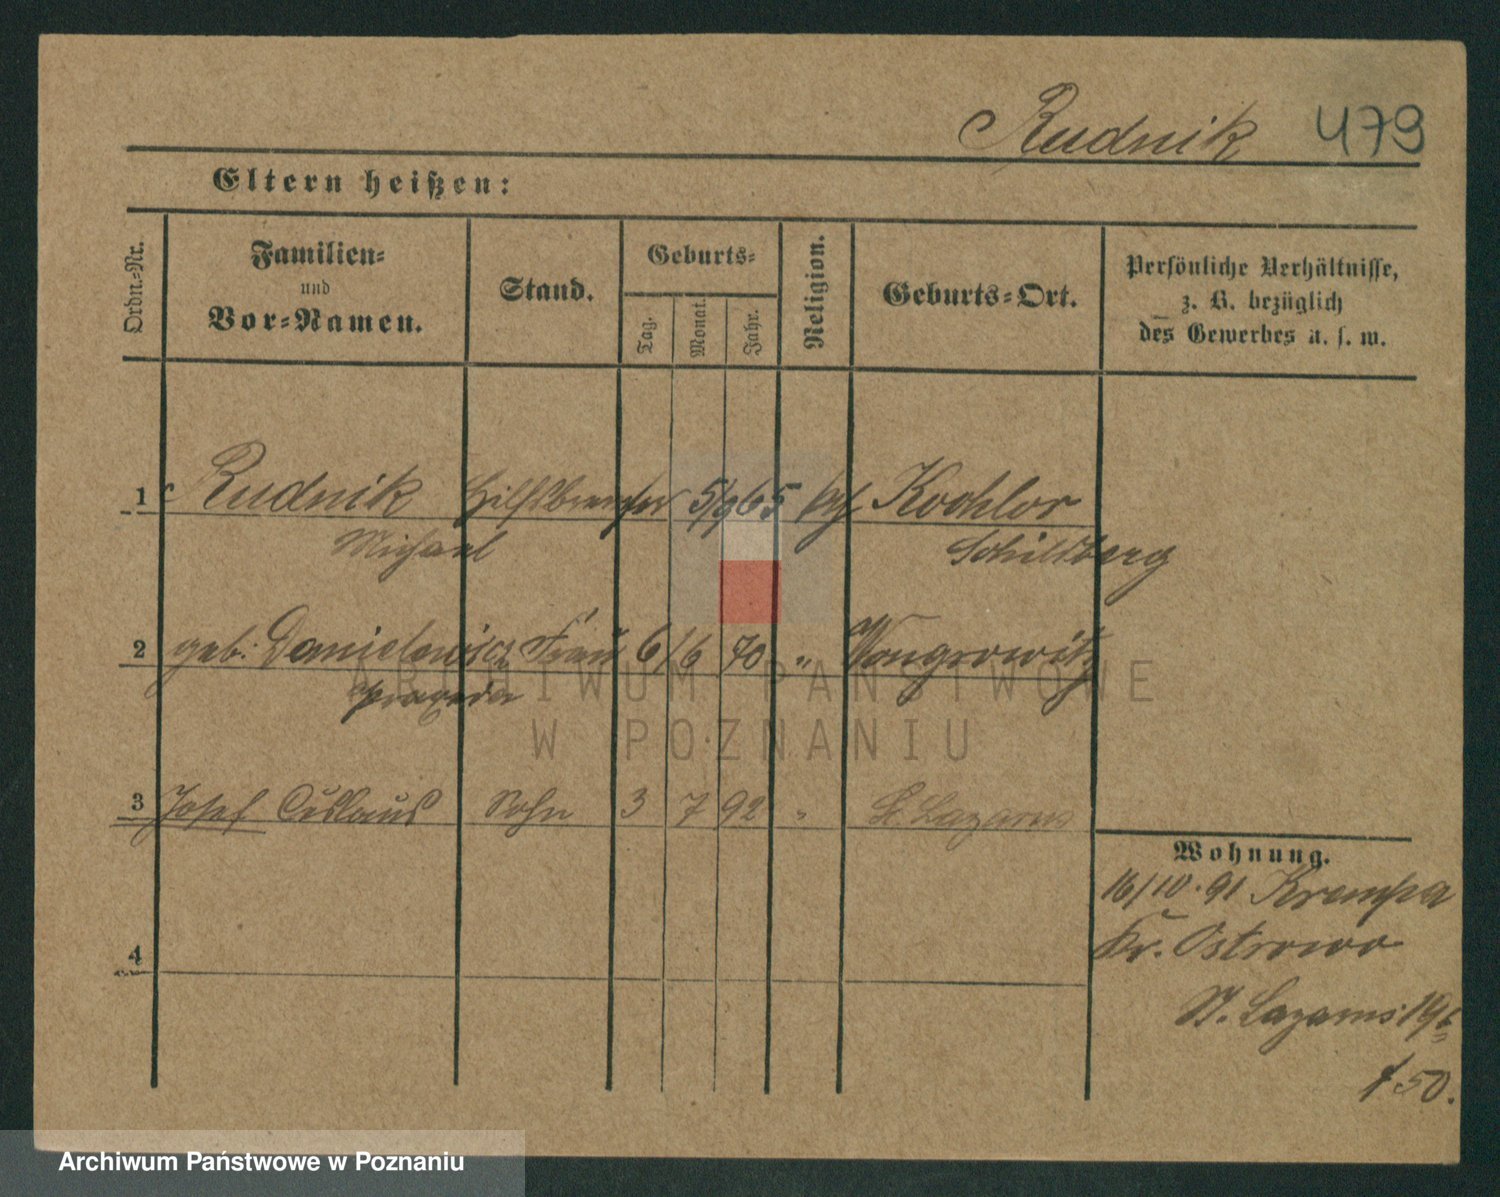 Rudnik 479
Eltern heißen:
Ordn.-Nr.
Familien-
und
Vor-Namen.
Stand.
Geburts-
Tag.
Monat.
Jahr.
Religion.
Geburts-Ort.
Persönliche Verhältnisse,
z. B. bezüglich
des Gewerbes u. s. w.
1 Rudnik Hilfsbremser 5/9 65 kth Kochlor
Michael Schildberg
2 geb: Danielewicz Frau 6/6 70 " Wongrowitz
Praxeda
3 Josef Ceslaus Sohn 3 7 92 " St Lazarus
4
Wohnung.
16/10. 91 Krempa
Kr. Ostrowo
St. Lazarus 19
f 50.
ARCHIWUM PAŃSTWOWE
W POZNANIU
Archiwum Państwowe w Poznaniu